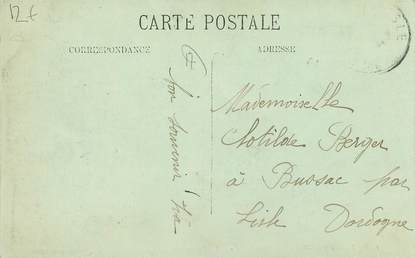 12€
CARTE POSTALE
CORRESPONDANCE
ADRESSE
Mon souvenir
Mademoiselle
Clotilde Berger
à Bussac par
Lisle Dordogne